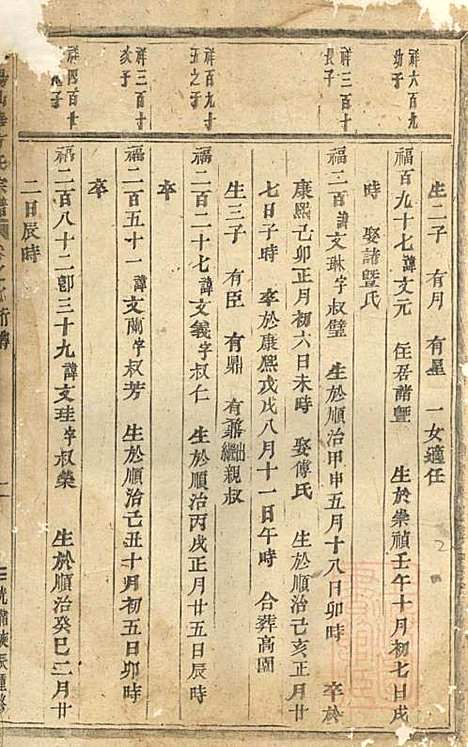 生二子 有月 有星 一女適任
祥六百九
幼子
福百九十七諱文元 任居諸暨 生於崇禎壬午十月初七日戌
時 娶諸暨氏
祥三百十
長子
福二百諱文琳字叔璧 生於順治甲申五月十八日卯時 卒於
康熙己卯正月初六日未時 娶傅氏 生於順治己亥正月初
七日子時 卒於康熙戊戌八月十一日午時 合葬高園
生三子 有臣 有鼎 有鼐出繼親叔
祥百九十
五之子
福二百二十七諱文義字叔仁 生於順治丙戌正月廿五日辰時
卒
祥三百十
次子
福二百五十一諱文蘭字叔芳 生於順治己丑十月初五日卯時
卒
祥四百廿
子
福二百八十二郎三十九諱文珪字叔榮 生於順治癸巳二月廿
二日辰時
氏宗譜 行傳
咸辰重修